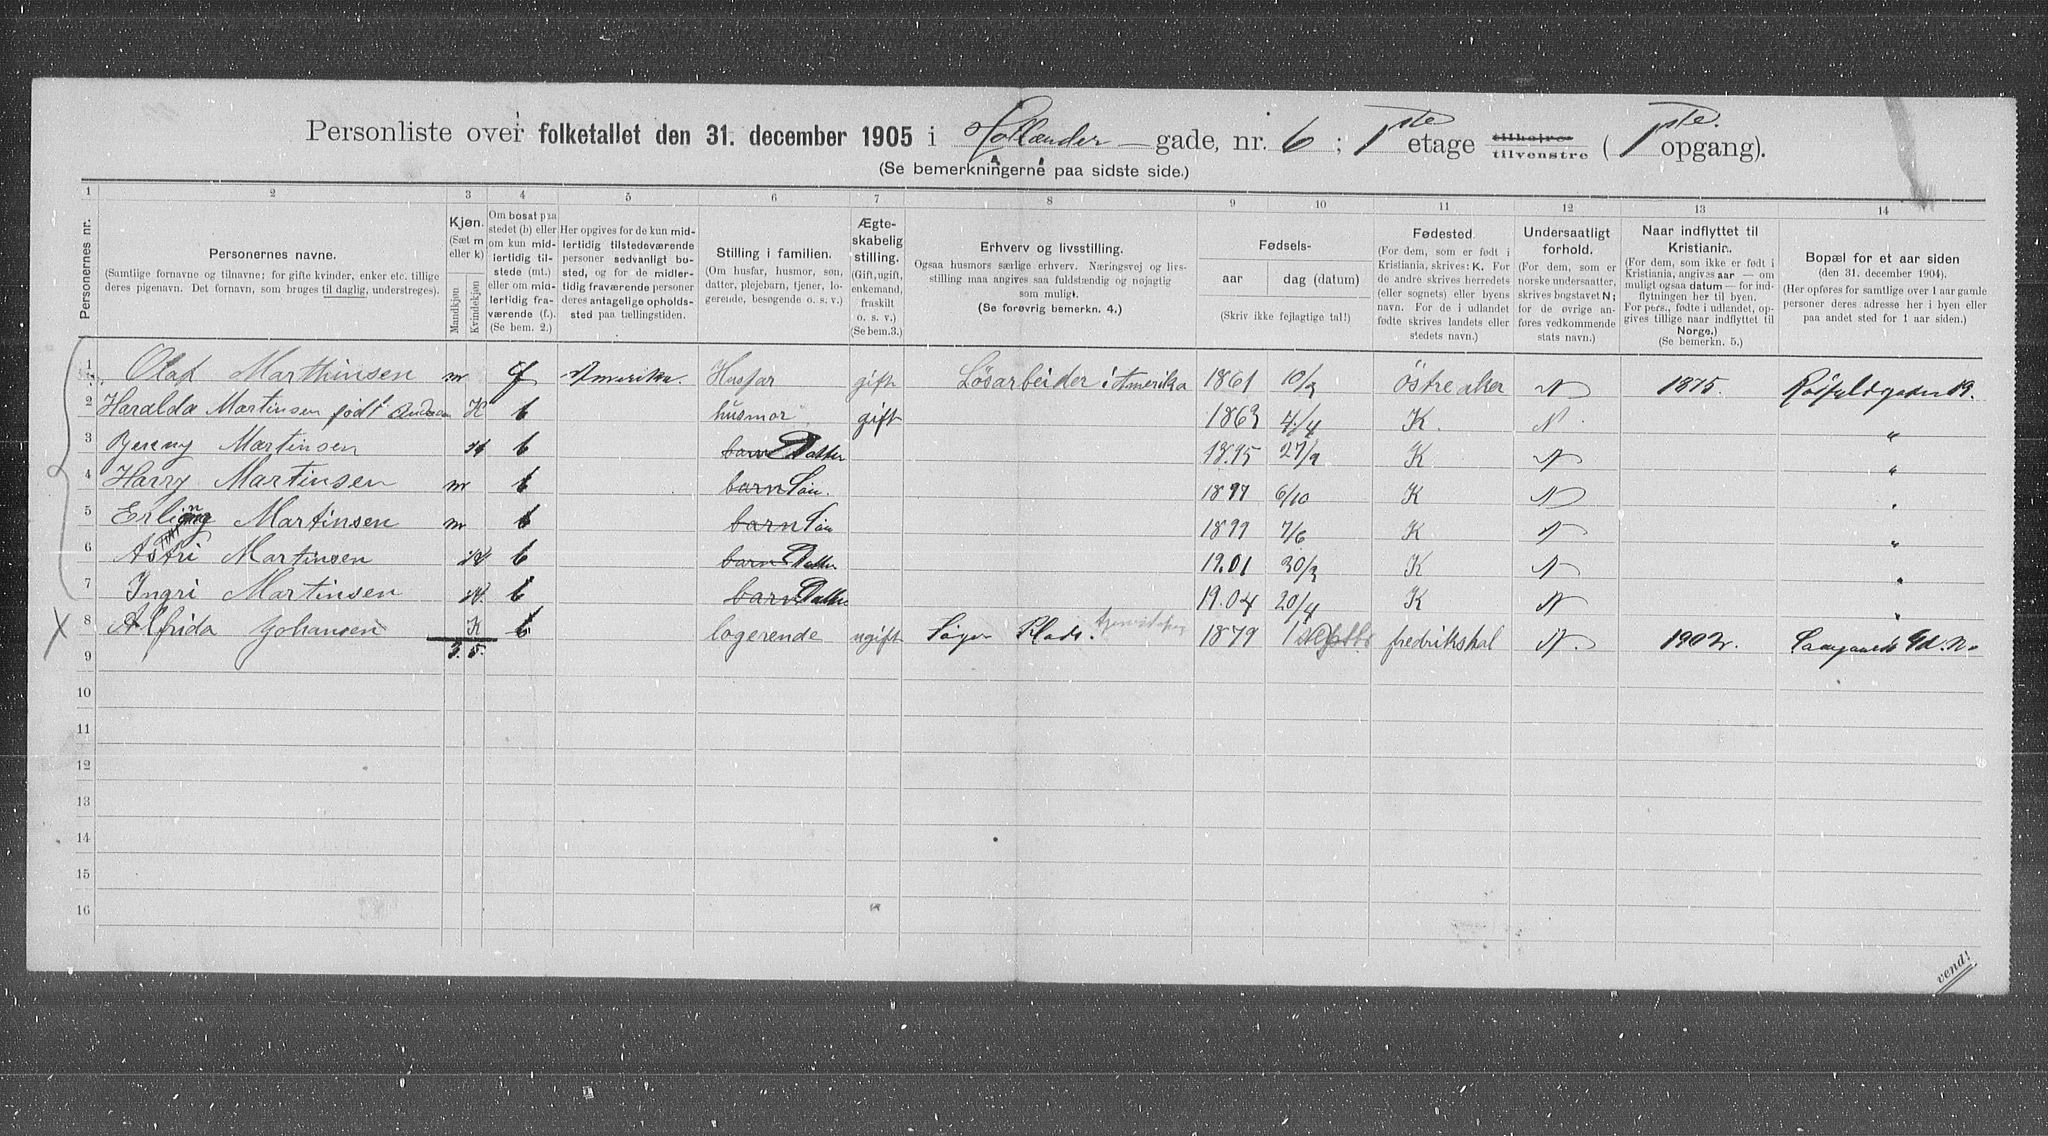 Personliste over folketallet den 31. december 1905 i Hollænder-gade, nr. 6; 1ste etage tilhøjre tilvenstre (1ste opgang).
(Se bemerkningerne paa sidste side.)
1 2 3 4 5 6 7 8 9 10 11 12 13 14
Personernes nr.
Personernes navne.
(Samtlige fornavne og tilnavne; for gifte kvinder, enker etc. tillige deres pigenavn. Det fornavn, som bruges til daglig, understreges).
Kjøn.
(Sæt m eller k)
Mandkjøn
Kvindekjøn
Om bosat paa stedet (b) eller om kun midlertidig tilstede (mt.) eller om midlertidig fraværende (f.)
(Se bem. 2.)
Her opgives for de kun midlertidig tilstedeværende personer sedvanligt bosted, og for de midlertidig fraværende personer deres antagelige opholdssted paa tællingstiden.
Stilling i familien.
(Om husfar, husmor, søn, datter, plejebarn, tjener, logerende, besøgende o. s. v.)
Ægteskabelig stilling.
(Gift, ugift, enkemand, fraskilt o. s. v.)
(Se bem. 3.)
Erhverv og livsstilling.
Ogsaa husmors særlige erhverv. Næringsvej og livsstilling maa angives saa fuldstændig og nøjagtig som muligt.
(Se forøvrig bemerkn. 4.)
Fødsels-
aar
dag (datum)
(Skriv ikke fejlagtige tal!)
Fødested.
(For dem, som er født i Kristiania, skrives: K. For de andre skrives herredets (eller sognets) eller byens navn. For de i udlandet fødte skrives landets eller stedets navn.)
Undersaatligt forhold.
(For dem, som er norske undersaatter, skrives bogstavet N; for de øvrige anføres vedkommende stats navn.)
Naar indflyttet til Kristiania.
(For dem, som ikke er født i Kristiania, angives aar — om muligt ogsaa datum — for indflytningen her til byen. For pers., fødte i udlandet, opgives tillige naar indflyttet til Norge.)
(Se bemerkn. 5.)
Bopæl for et aar siden
(den 31. december 1904).
(Her opføres for samtlige over 1 aar gamle personer deres adresse her i byen eller paa andet sted for 1 aar siden.)
1 Olaf Marthinsen m f Amerika. Husfar gift Løsarbeider i Amerika 1861 10/3 Østre aker N 1875. 19.
2 Haralda Martinsen født K b husmor gift 1863 4/4 K. N. "
3 Martinsen K b barn Datter 1895 27/9 K N "
4 Harry Martinsen m b barn Søn. 1897 6/10 K N "
5 Erling Martinsen m b barn Søn 1899 7/6 K N "
6 Astri Martinsen K b barn Datter 1901 30/3 K N "
7 Ingri Martinsen K. b barn Datter 1904 20/4 K N "
X 8 Alfrida Johansen K b logerende ugift Søger Plads. 1879 1 fredrikshal N. 1902.
3. 5.
9
10
11
12
13
14
15
16
vend!